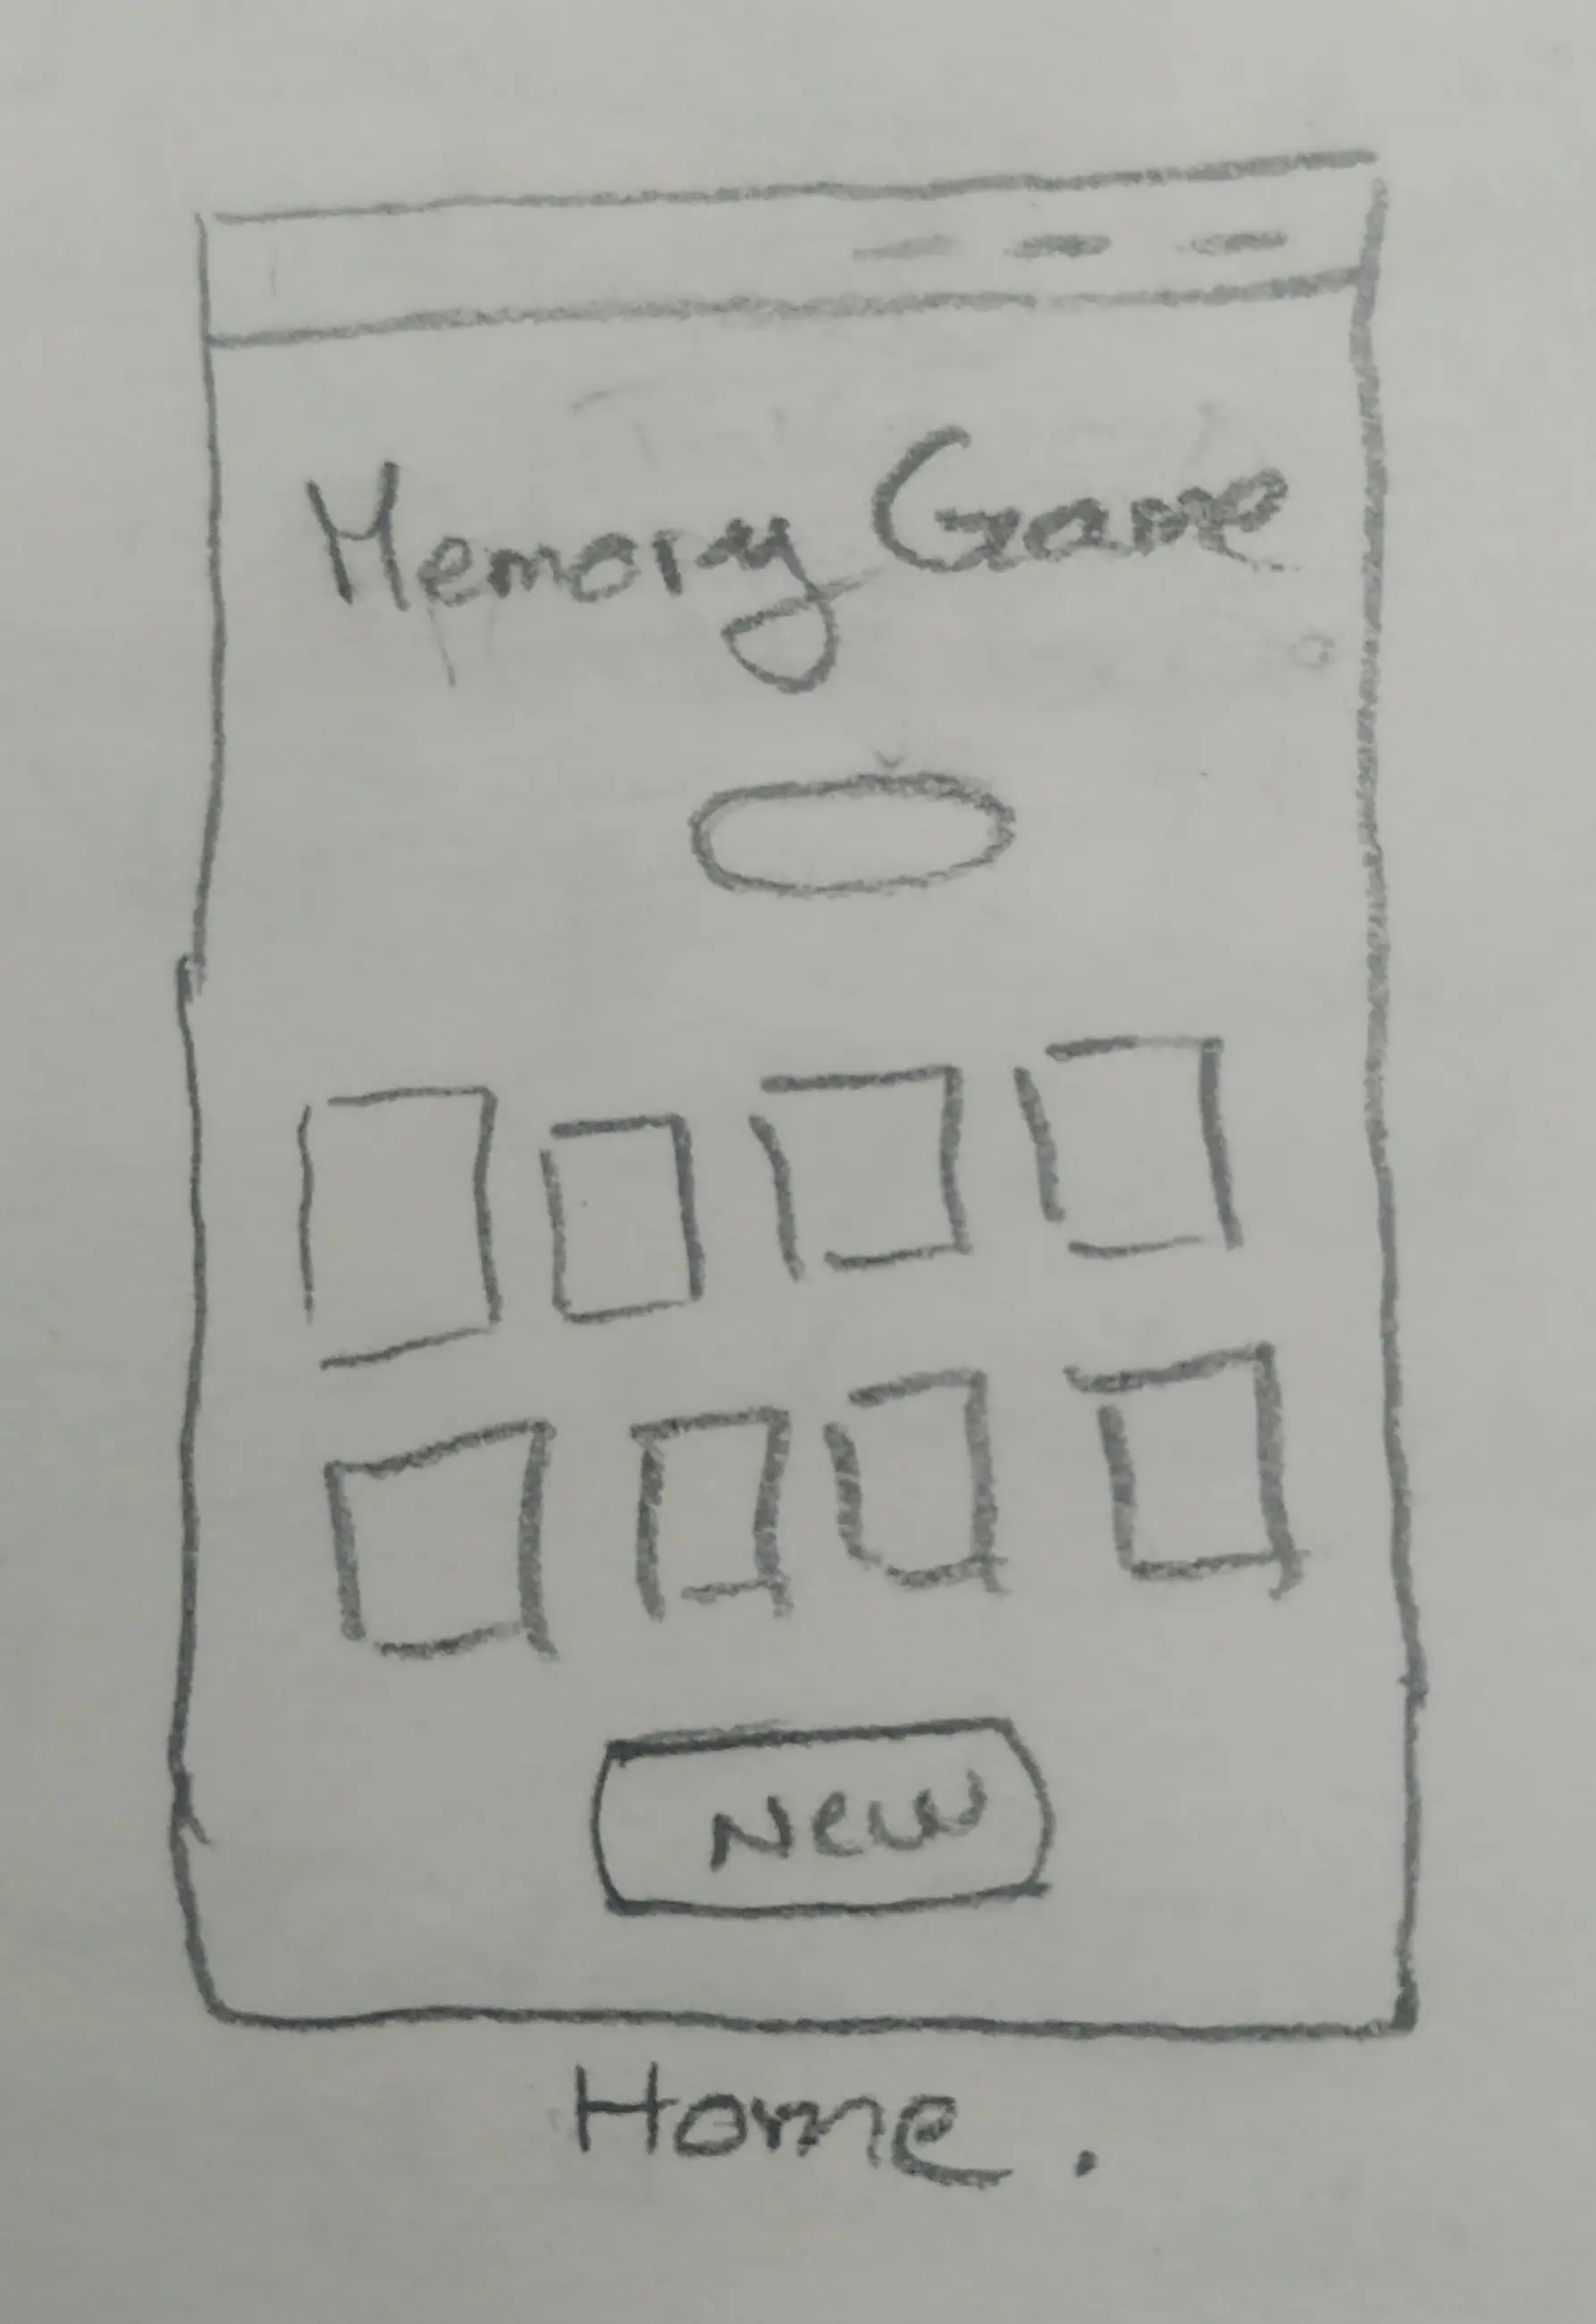 Memory Game
New
Home.